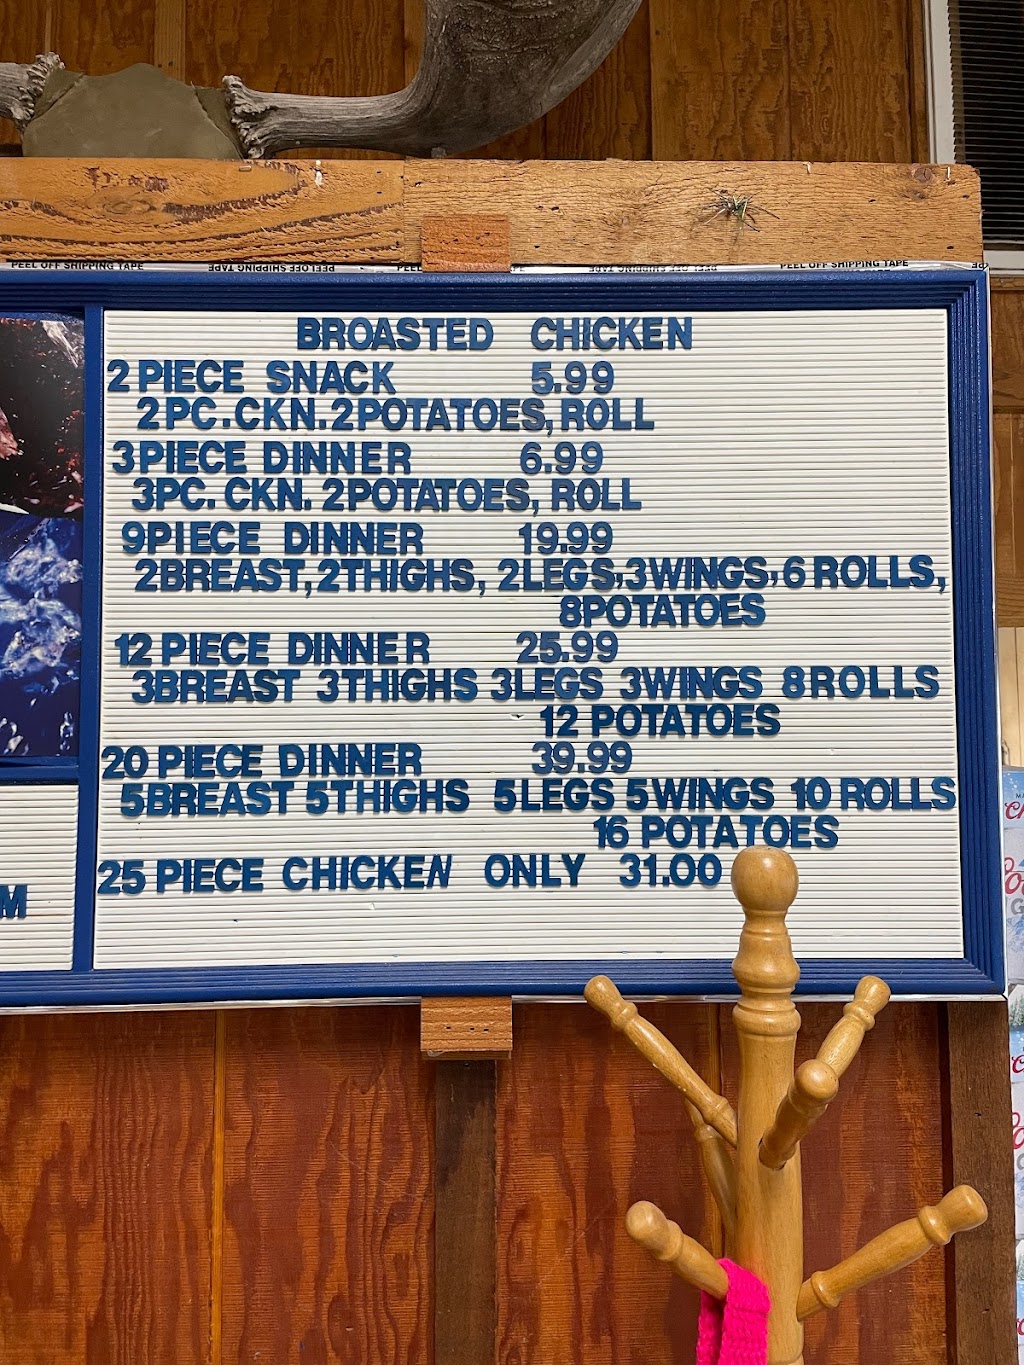 PEEL OFF SHIPPING TAPE PEEL OFF SHIPPING TAPE PEEL OFF SHIPPING TAPE PEEL OFF SHIPPING TAPE
BROASTED CHICKEN
2 PIECE SNACK 5.99
2 PC.CKN. 2 POTATOES, ROLL
3 PIECE DINNER 6.99
3PC. CKN. 2 POTATOES, ROLL
9 PIECE DINNER 19.99
2 BREAST, 2 THIGHS, 2 LEGS, 3 WINGS, 6 ROLLS,
8 POTATOES
12 PIECE DINNER 25.99
3 BREAST 3 THIGHS 3 LEGS 3 WINGS 8 ROLLS
12 POTATOES
20 PIECE DINNER 39.99
5 BREAST 5 THIGHS 5 LEGS 5 WINGS 10 ROLLS
16 POTATOES
25 PIECE CHICKEN ONLY 31.00
M